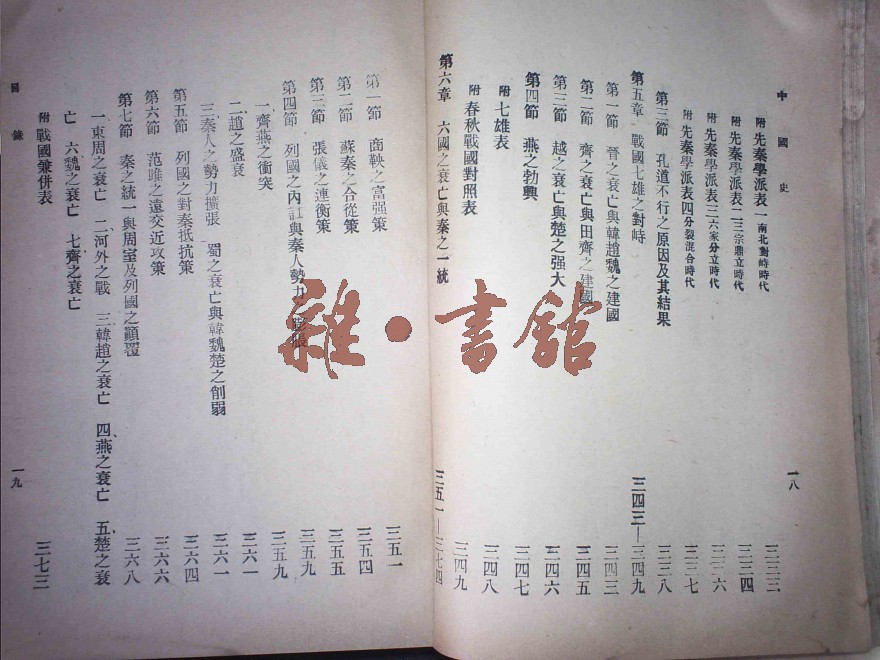 中國史
一八
附 先秦學派表一 南北對峙時代 三三三
附 先秦學派表二 三宗鼎立時代 三三四
附 先秦學派表三 六家分立時代 三三六
附 先秦學派表四 分裂混合時代 三三七
第三節 孔道不行之原因及其結果 三三八
第五章 戰國七雄之對峙 三四三—三四九
第一節 晉之衰亡與韓趙魏之建國 三四三
第二節 齊之衰亡與田齊之建國 三四五
第三節 越之衰亡與楚之强大 三四六
第四節 燕之勃興 三四七
附 七雄表 三四八
附 春秋戰國對照表 三四九
第六章 六國之衰亡與秦之一統 三五一—三七四
第一節 商鞅之富强策 三五一
第二節 蘇秦之合從策 三五四
第三節 張儀之連衡策 三五五
第四節 列國之內訌與秦人勢力 張 三五九
一、齊燕之衝突 三五九
二、趙之盛衰 三六一
三、秦人之勢力擴張 蜀之衰亡與韓魏楚之削弱 三六一
第五節 列國之對秦抵抗策 三六四
第六節 范雎之遠交近攻策 三六六
第七節 秦之統一與周室及列國之顚覆 三六八
一、東周之衰亡 二、河外之戰 三、韓趙之衰亡 四、燕之衰亡 五、楚之衰
亡 六、魏之衰亡 七、齊之衰亡
附 戰國兼併表 三七三
目錄
一九
雜·書館